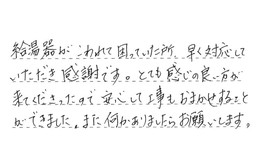 給湯器がこわれて困っていた所、早く対応して
いただき感謝です。とても感じの良い方が
来てくださったので安心して工事もおまかせすること
ができました。また何かありましたらお願いします。